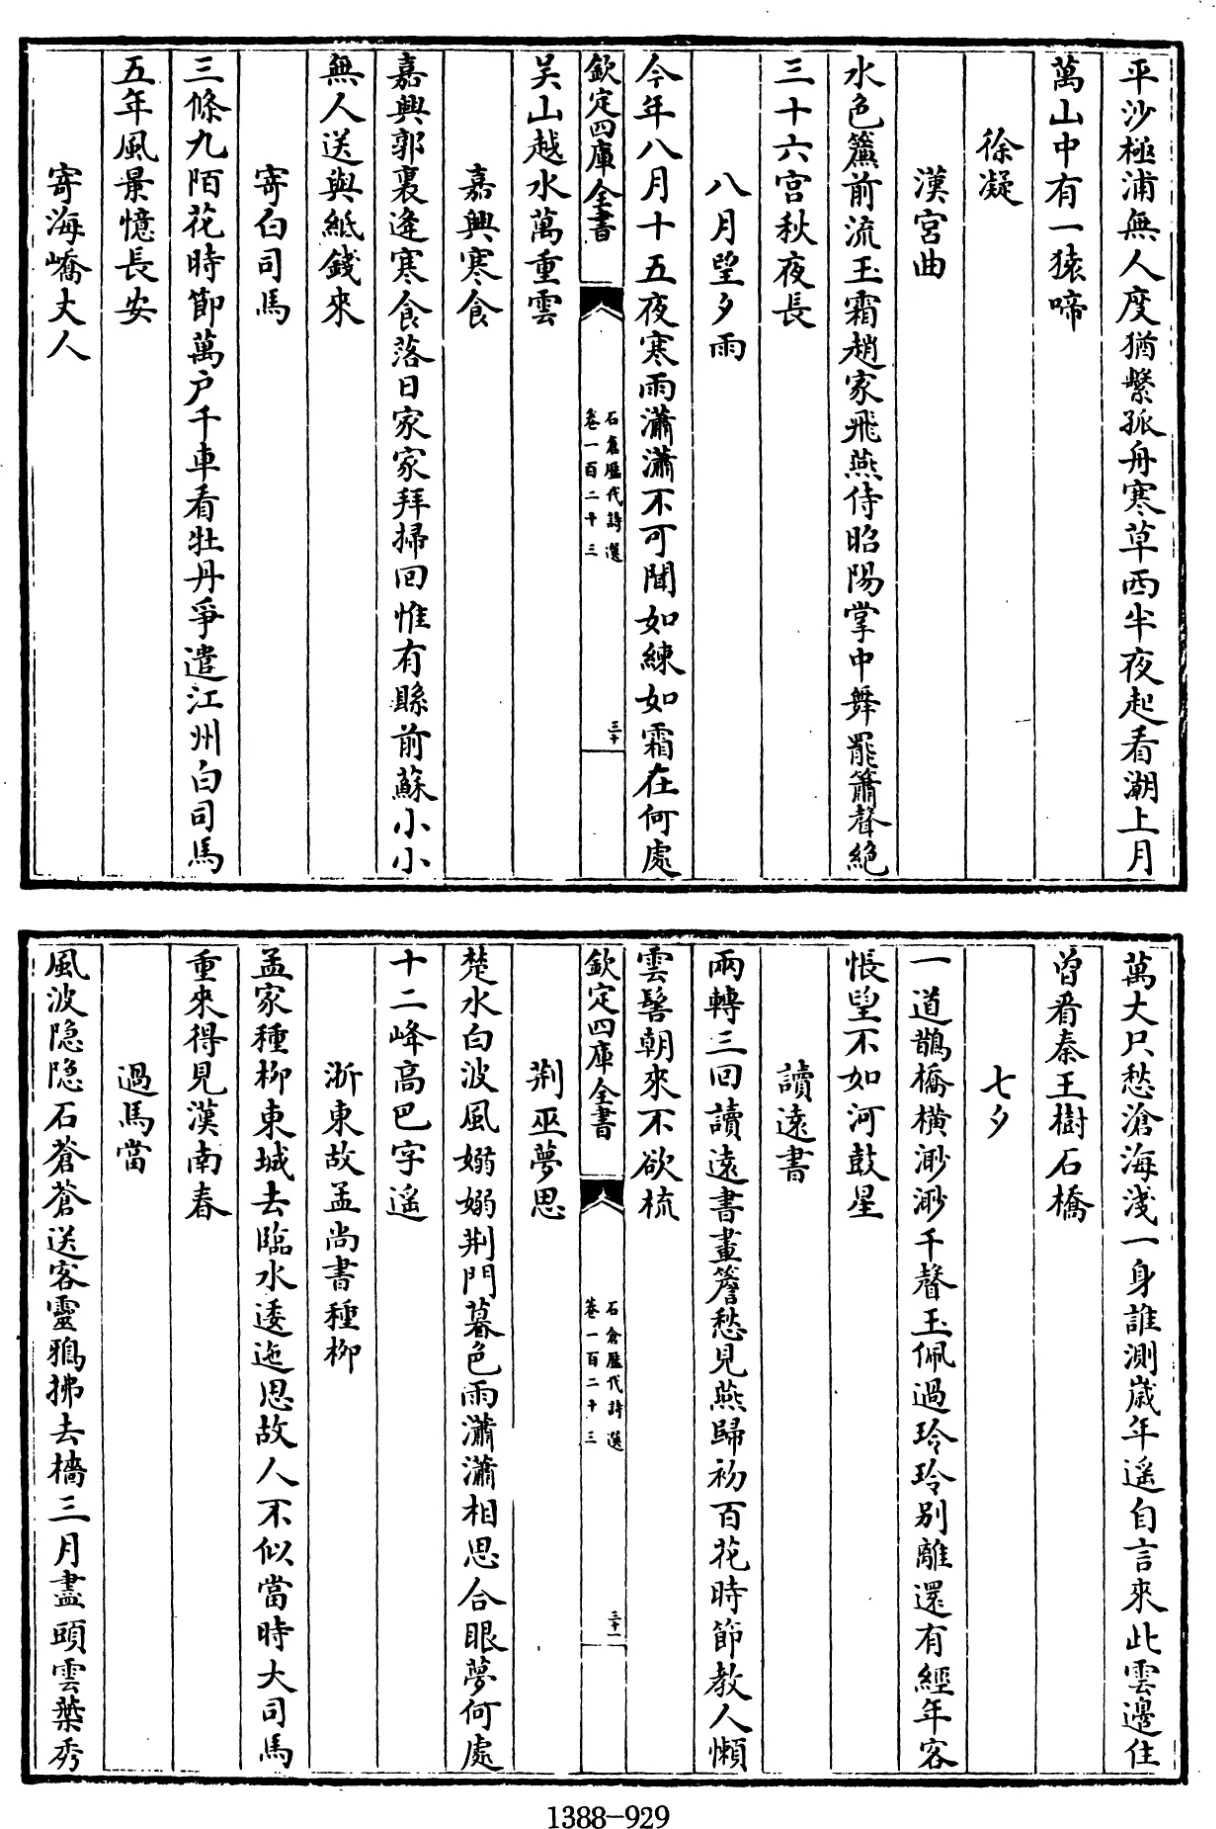 平沙極浦無人度猶繫孤舟寒草西半夜起看潮上月
萬山中有一猿啼
徐凝
漢宮曲
水色簾前流玉霜趙家飛燕侍昭陽掌中舞罷簫聲絶
三十六宮秋夜長
八月望夕雨
今年八月十五夜寒雨瀟瀟不可聞如練如霜在何處
欽定四庫全書
石倉歷代詩選
卷一百二十三
三十
吴山越水萬重雲
嘉興寒食
嘉興郭裏逢寒食落日家家拜掃回惟有縣前蘇小小
無人送與紙錢來
寄白司馬
三條九陌花時節萬户千車看牡丹爭遣江州白司馬
五年風景憶長安
寄海嶠丈人
萬丈只愁滄海淺一身誰測歲年遥自言來此雲邊住
曾看秦王樹石橋
七夕
一道鵲橋横渺渺千聲玉佩過玲玲别離還有經年客
悵望不如河鼓星
讀遠書
兩轉三回讀遠書畫簷愁見燕歸初百花時節教人懶
雲髻朝來不欲梳
欽定四庫全書
石倉歷代詩選
卷一百二十三
三十一
荆巫夢思
楚水白波風嫋嫋荆門暮色雨瀟瀟相思合眼夢何處
十二峰高巴字遥
浙東故孟尚書種柳
孟家種柳東城去臨水逶迤思故人不似當時大司馬
重來得見漢南春
過馬當
風波隐隐石蒼蒼送客靈鴉拂去檣三月盡頭雲葉秀
1388-929